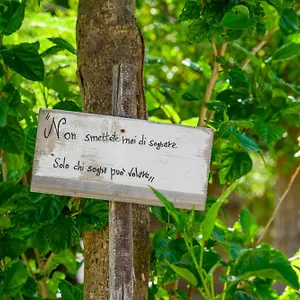 "Non smettete mai di sognare.
Solo chi sogna può volare"